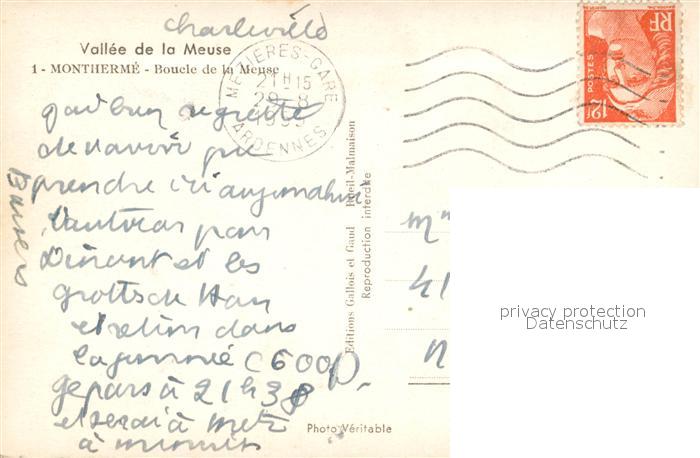 Charleville
Vallée de la Meuse
1 - MONTHERMÉ - Boucle de la Meuse
MÉZIÈRES-GARE
21H15
29-8
ARDENNES
RF
POSTES
12F
j'ai bien regretté
de n'avoir pu
prendre ici aujourd'hui
l'autocar pour
Dinant et les
grottes de Han
et retour dans
la journée (600 F)
Je pars à 21h38
et serai à Metz
à minuit
Baisers
Editions Gallois et Gaud Rueil-Malmaison
Reproduction interdite
Photo Véritable
privacy protection
Datenschutz